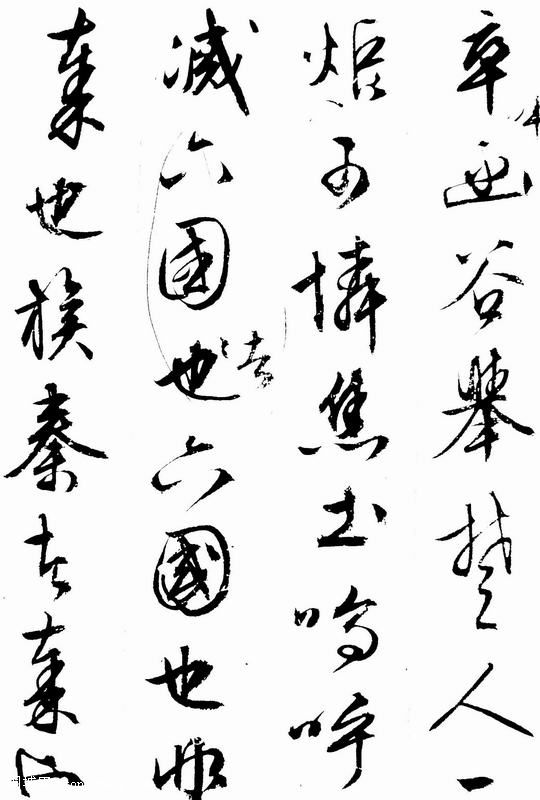 卒函谷舉楚人一
炬可憐焦土嗚呼
滅六国也者六國也非
秦也族秦者秦